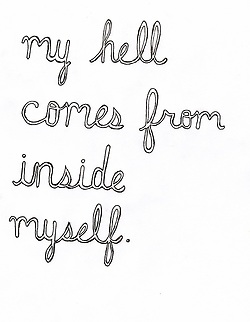 my hell
comes from
inside
myself.